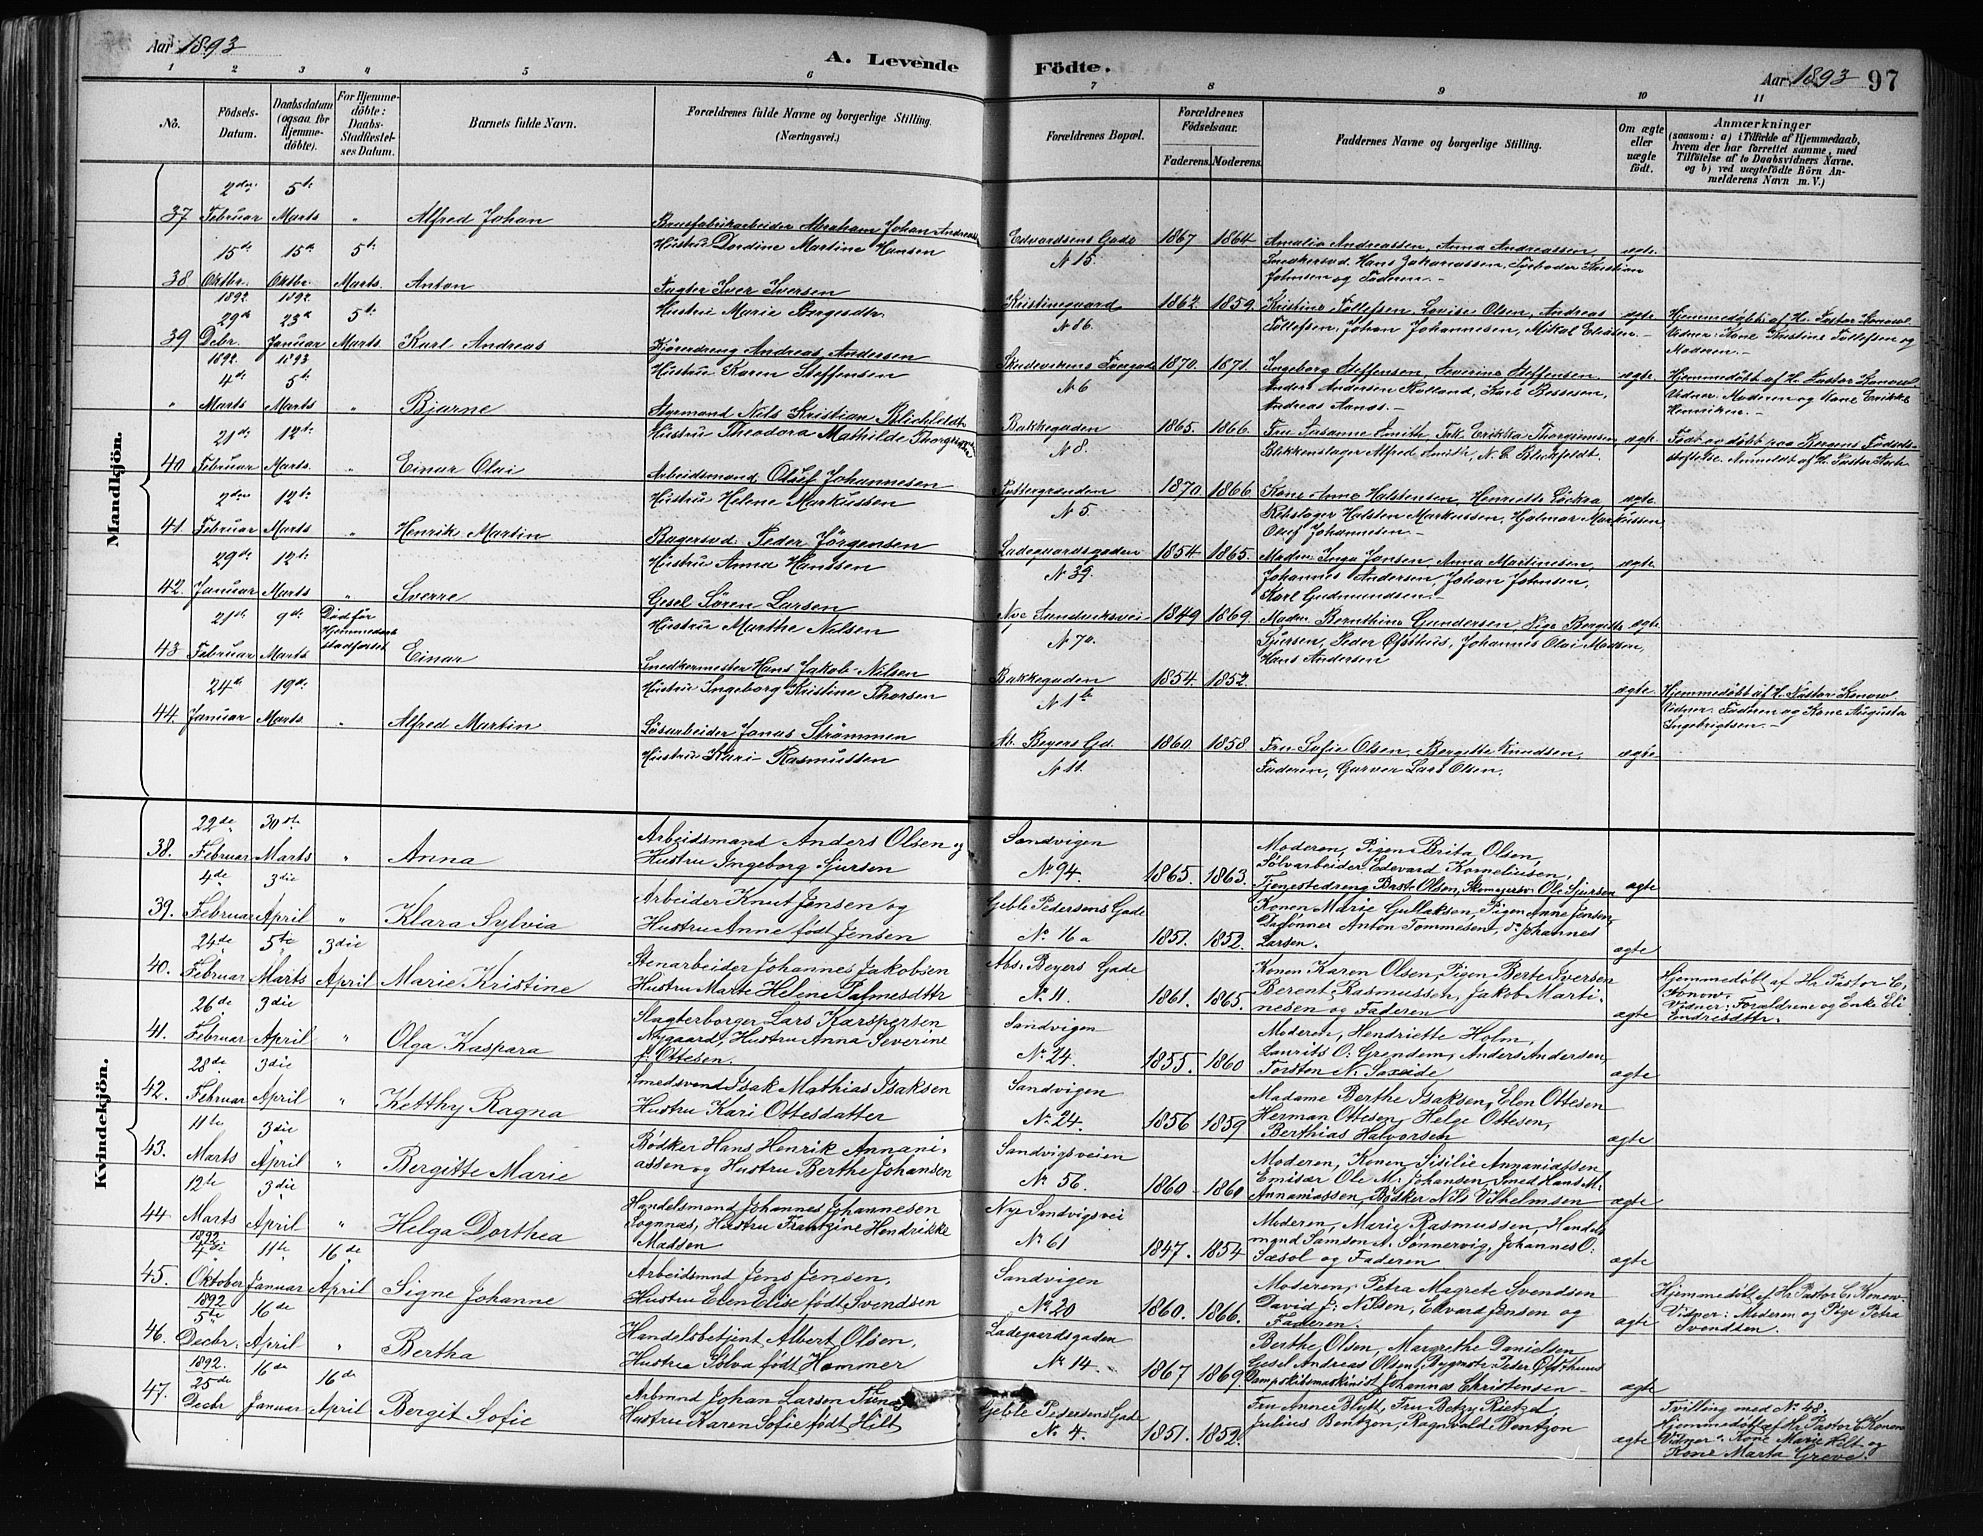 Aar 1893
A. Levende Födte.
Aar 1893 97
1 2 3 4 5 6 7 8 9 10 11
No.
Födsels-Datum.
Daabsdatum (ogsaa for Hjemmedöbte).
For Hjemmedöbte: Daabs-Stadfæstelses Datum.
Barnets fulde Navn.
Forældrenes fulde Navne og borgerlige Stilling. (Næringsvei.)
Forældrenes Bopæl.
Forældrenes Födselsaar.
Faderens. Moderens.
Faddernes Navne og borgerlige Stilling.
Om ægte eller uægte födt.
Anmærkninger (saasom: a) i Tilfælde af Hjemmedaab, hvem der har forrettet samme, med Tilföielse af to Daabsvidners Navne. og b) ved uægtefödte Börn Anmelderens Navn m. V.)
Mandkjön.
37 2den Februar 5te Marts " Alfred Johan
Abraham Johan Andreas
Hustru Dordine Martine Hansen
Edvardsens Gade N 15. 1867 1864
Amalia Andreassen, Anna Andreassen,
Hans Zakariassen, Kristian
Johnsen og Faderen.— ægte
38 15de Oktbr. 1892 15de Oktbr. 1892 5te Marts. Anton
Iver Iversen
Hustru Marie Børgesdtr
Kristinegaard N 86. 1862. 1859.
Kristine Tollefsen, Lovise Olsen, Andreas
Tollefsen, Johan Johannesen, Mikal Eliasen— ægte
Hjemmedøbt af H. Pastor Konow.
Vidner: Kone Kristine Tollefsen og
Moderen.—
39 29de Debr. 1892. 23de Januar 1893 5te Marts. Karl Andreas
Kjøredreng Andreas Andersen
Hustru Karen Steffensen
Skudevikens Tvergade N 6 1870. 1871.
Ingeborg Steffensen, Severine Steffensen
Anders Andersen Holland, Kari Bessesen,
Andreas Aanes.— ægte
Hjemmedøbt af H. Pastor Konow.
Vidner: Moderen og Kone Erikke
Henriksen.—
" 4de Marts 5te Marts " Bjarne
Styrmand Nils Kristian Blichfeldt
Hustru Theodora Mathilde
Bakkegaden N 8. 1865. 1866.
Fru Susanne Smith, Frk. Erikka Thorgrimsen,
Blikkenslager Alfred Smith, N. C. Blichfeldt. ægte
Født og døbt paa Bergens Fødselsstiftelse. Anmeldt af H. Pastor
40 21de Februar 12te Marts. " Einar Olai
Arbeidsmand Oluf Johannesen
Hustru Helene Markussen
N 5. 1870 1866
Kone Anne Halstensen, Henriette
Rebslager Halsten Markussen, Hjalmar Markussen
Oluf Johannesen.— ægte
41. 2den Februar 12te Marts " Henrik Martin
Bagersvd. Peder Jörgensen
Hustru Anna Hanssen
Ladegaardsgaden N 39. 1854 1865.
Madm. Inga Jansen, Anna Martinesen,
Johannes Andersen, Johan Johnsen,
Karl Gudmundsen.— ægte
42. 29de Januar 12te Marts " Sverre
Gesel Sören Larsen
Hustru Marthe Nilsen
Nye Sandviksvei N 70. 1849 1869
Madm. Bernthine Gundersen, Pige Bergitte
Sjursen, Peder Ofsthus, Johannes Olai Madsen,
Hans Andersen ægte
43 21de Februar 9de Marts Død før Hjemmedaab stadfæstet Einar
Snedkermester Hans Jakob Nilsen
Hustru Ingeborg Kristine Thorsen
Bakkegaden N 1b 1854. 1852. ægte
Hjemmedøbt af H. Pastor Konow.
Vidner: Faderen og Kone Augusta
Ingebrigtsen.—
44. 24de Januar 19de Marts. " Alfred Martin
Løsarbeider Jonas Strömmen
Hustru Kari Rasmussen
Ab. Beyers Gd. N 11. 1860. 1858.
Fru Sofie Olsen, Bergitte Knudsen,
Faderen, Garver Lars Olsen. ægte
Kvindekjön.
38. 22de Februar 30te Marts " Anna
Arbeidsmand Anders Olsen og
Hustru Ingeborg Sjursen
Sandvigen No 94. 1865. 1863.
Moderen, Pigen Brita Olsen,
Sølvarbeider Edevard Korneliusen,
Tjenestedreng Bast. Olsen, Skomagersv. Ole Sjursen ægte
39. 4de Februar 3die April " Klara Sylvia
Arbeider Knut Jensen og
Hustru Anne født Jensen
Geble Pedersens Gade No. 16 a 1851. 1852.
Konen Marie Gullaksen, Pigen Anne Jensen,
Anton Tommesen, do Johannes
Larsen. ægte
40. 24de Februar 5te Marts 3die April Marie Kristine
Stenarbeider Johannes Jakobsen
Hustru Marte Helene Palmesdttr
Abs. Beyers Gade No. 11. 1861. 1865.
Konen Karen Olsen, Pigen Berte Iversen
Berent Rasmussen, Jakob Martinesen og Faderen ægte
Hjemmedøbt af Hr. Pastor C.
Konow.
Vidner: Forældrene og Enke Eli
Endresdttr.
41. 26de Februar 3die April " Olga Kaspara
Slagterborger Lars Kaspersen
Nygaard, Hustru Anna Severine
f. Ottesen.
Sandvigen No 24. 1855. 1860
Moderen, Hendriette Holm,
Laurits O. Grendem, Anders Andersen
Torsten N. Sexeide ægte
42. 28de Februar 3die April " Ketthy Ragna
Smedsvend Isak Mathias Isaksen
Hustru Kari Ottesdatter
Sandvigen No 24. 1856 1859
Madame Berthe Isaksen, Elen Ottesen
Herman Ottesen, Helge Ottesen,
Berthias Halvorsen ægte
43. 11te Marts 3die April " Bergitte Marie
Bødker Hans Henrik Annaniassen og Hustru Berthe Johansen
Sandvigsveien No. 56. 1860 1860
Moderen, Konen Sisilie Annaniassen
Emisær Ole M. Johansen, Smed Hans M.
Annaniassen, Bødker Nils Vilhelmsen ægte
44 12te Marts 3die April " Helga Dorthea
Handelsmand Johannes Johannesen
Sognnæs, Hustru Frantzine Hendrikke
Madsen
Nye Sandvigsvei No 61 1847. 1854
Moderen, Marie Rasmussen, Handelsmand Samson A. Sønnervig, Johannes O.
Sæsol og Faderen ægte
45. 1892 4de Oktober 11te Januar 16de April Signe Johanne
Arbeidsmnd Jens Jensen,
Hustru Elen Elise født Svendsen
Sandvigen No. 20 1860. 1866.
Moderen, Petra Magrete Svendsen
David J. Nilsen, Edvard Jensen og
Faderen. ægte
Hjemmedøbt af Hr. Pastor C. Konow.
Vidner: Moderen og Pige Petra
Svendsen.
46. 1892 5te Decbr. 16de April " Bertha
Handelsbetjent Albert Olsen,
Hustru Sølva født Hammer
Ladegaardsgaden No. 14. 1867 1869
Berthe Olsen, Margrethe Danielsen
Gesel Andreas Olsen, Bygmstr. Peder Ofsthuus
Dampskibsmaskinist Johannes Christensen — ægte
47. 1892. 25de Decbr 16de Januar 16de April Bergit Sofie
Arbmnd Johan Larsen
Hustru Karen Sofie født Hilt
Geble Pedersens Gade No. 4. 1851. 1852.
Fru Anne Blytt, Fru Betzy Rietzel
Julius Bentzon, Ragnvald Bentzon ægte
Tvilling med No 48.
Hjemmedøbt af Hr. Pastor C. Konow
Vidner: Kone Marie Hilt og
Kone Marta Greve.